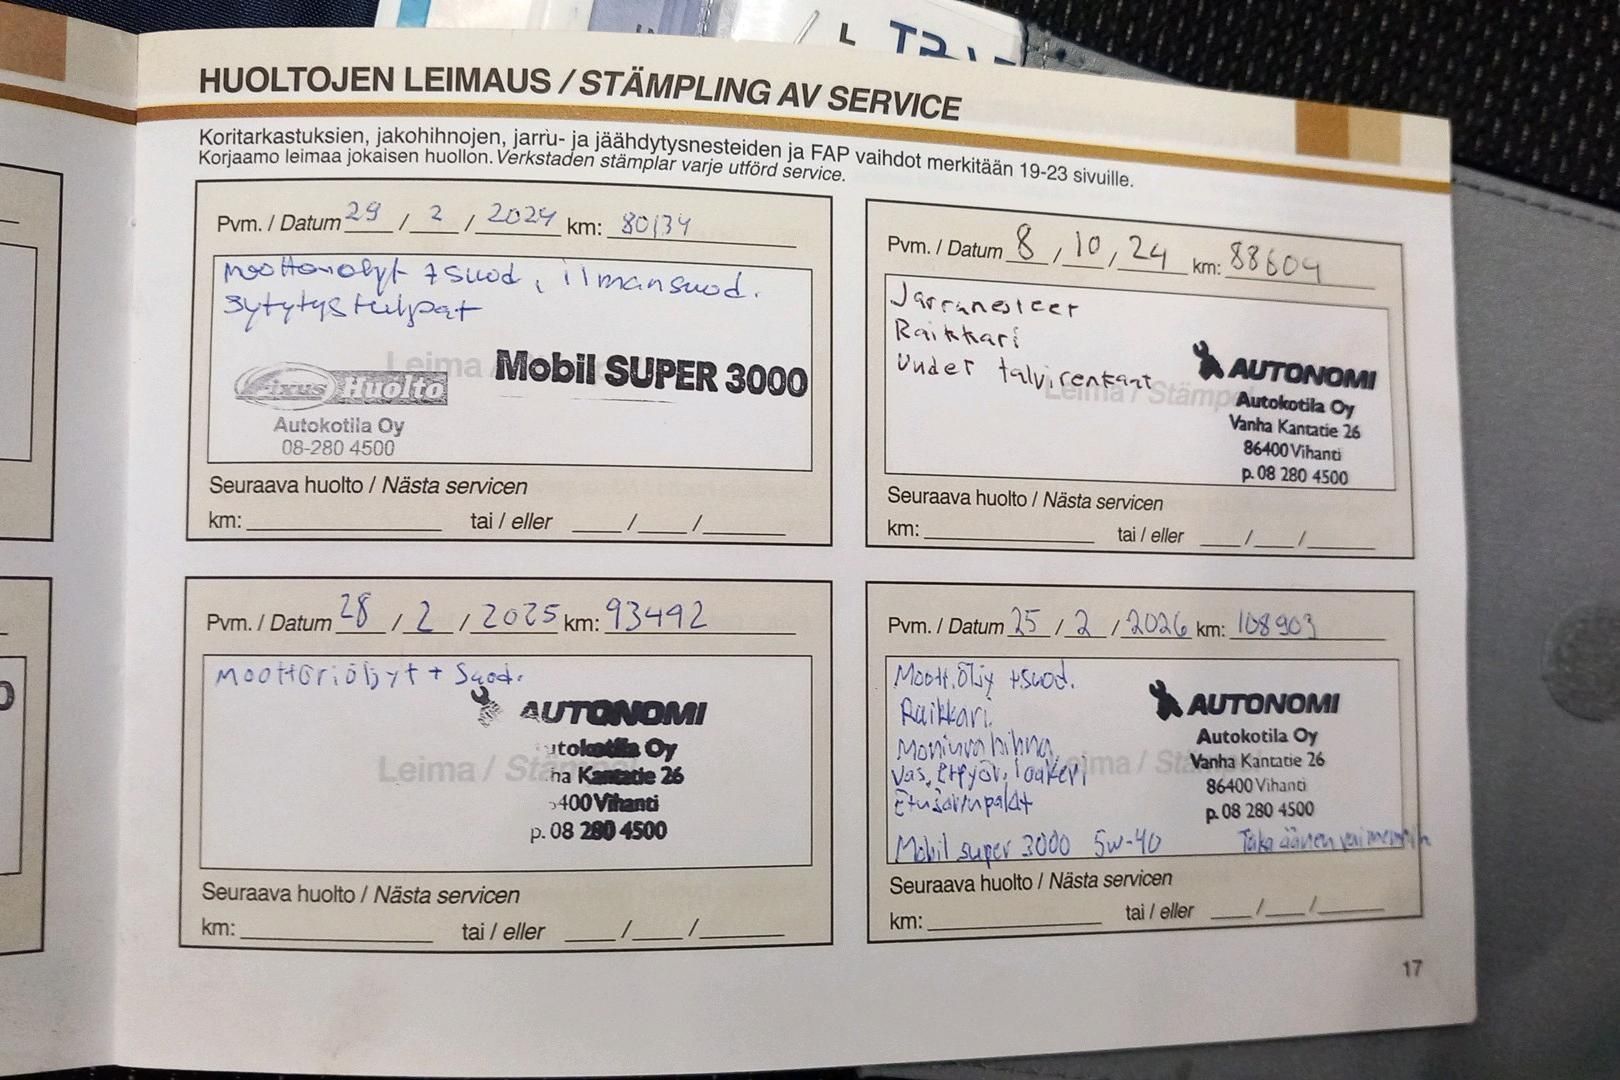 HUOLTOJEN LEIMAUS / STÄMPLING AV SERVICE
Koritarkastuksien, jakohihnojen, jarru- ja jäähdytysnesteiden ja FAP vaihdot merkitään 19-23 sivuille.
Korjaamo leimaa jokaisen huollon. Verkstaden stämplar varje utförd service.
Pvm. / Datum 29 / 2 / 2024 km: 80134
moottoriöljyt + suod, ilmansuod.
sytytystulpat
Leima /
Mobil SUPER 3000
Fixus Huolto
Autokotila Oy
08-280 4500
Seuraava huolto / Nästa servicen
km: tai / eller / /
Pvm. / Datum 8, 10, 24 km: 88604
Jarrunesteet
Raikkari
Uudet talvirenkaat
Leima / Stämpel
AUTONOMI
Autokotila Oy
Vanha Kantatie 26
86400 Vihanti
p. 08 280 4500
Seuraava huolto / Nästa servicen
km: tai / eller / /
Pvm. / Datum 28 / 2 / 2025 km: 93492
Moottoriöljyt + Suod.
AUTONOMI
utokotila Oy
Leima / Stämpel
ha Kantatie 26
400 Vihanti
p. 08 280 4500
Seuraava huolto / Nästa servicen
km: tai / eller / /
Pvm. / Datum 25 / 2 / 2026 km: 108903
Moott.Öljy +suod.
Raikkari.
Moniurahihna
Vas. etpyör. laakeri
Etujarrupalat
Mobil super 3000 5w-40
Taka äänenvaimennin
Leima / Stämpel
AUTONOMI
Autokotila Oy
Vanha Kantatie 26
86400 Vihanti
p. 08 280 4500
Seuraava huolto / Nästa servicen
km: tai / eller / /
17